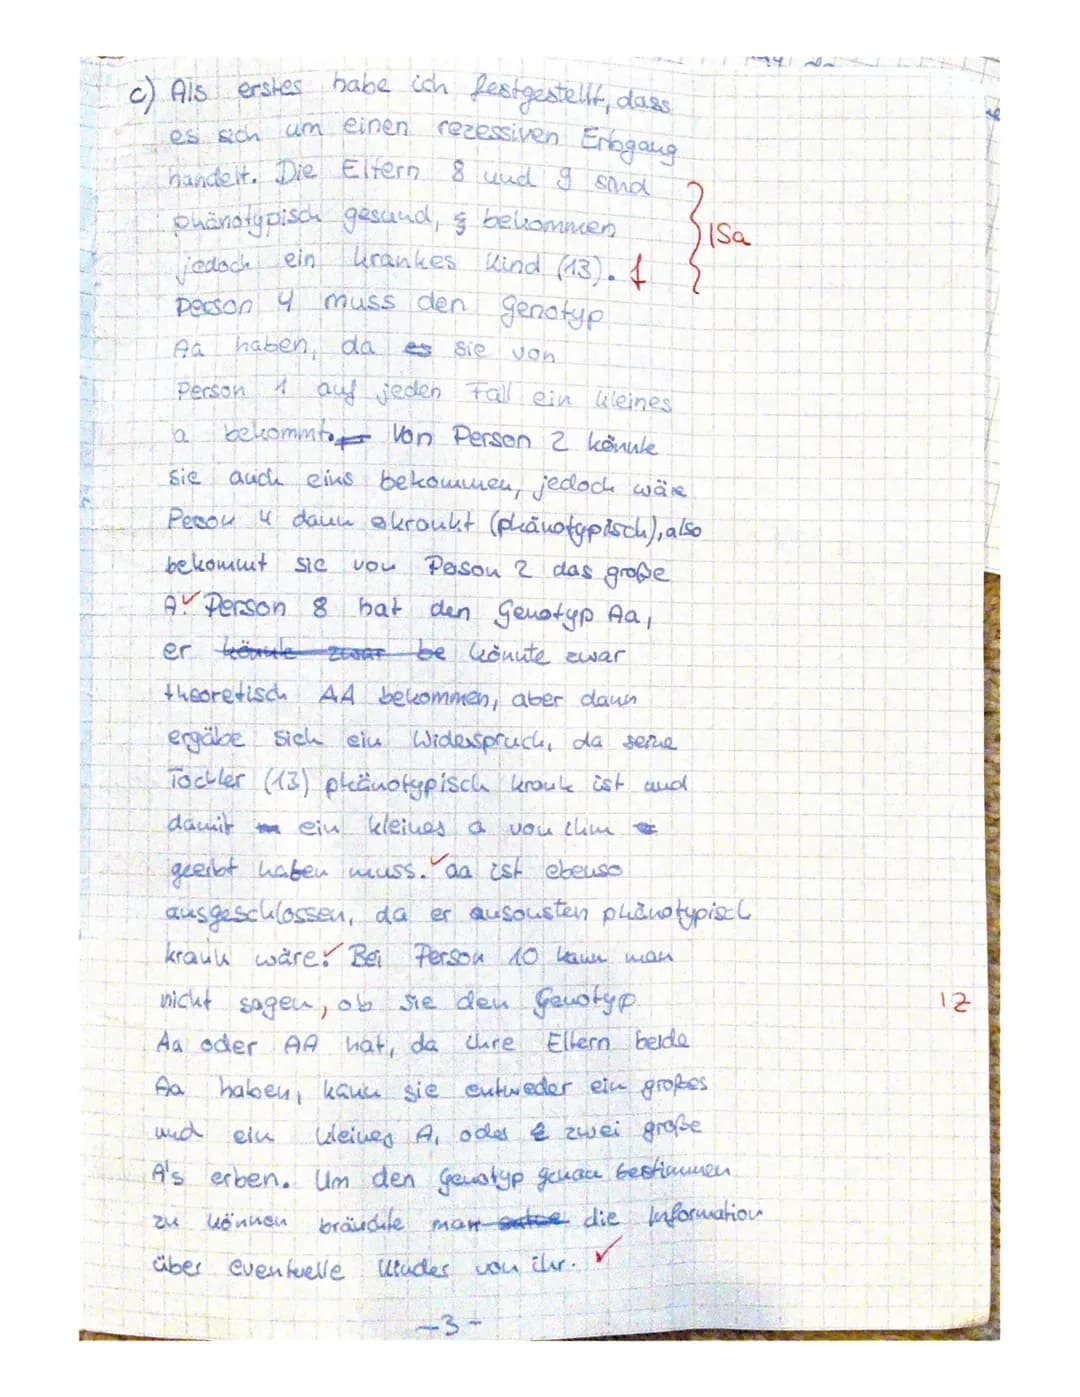 c) Als erstes habe ich festgestellt, dass
es sich um einen rezessiven Erbgang
handelt. Die Eltern 8 und 9 sind
phänotypisch gesund, bekommen
jedoch ein krankes Kind (13). f
} ISa
Person 4 muss den Genotyp
Aa haben, da es sie von
Person 1 auf jeden Fall ein kleines
a bekommt. Von Person 2 könnte
sie auch eins bekommen, jedoch wäre
Peson 4 dann krankt (phänotypisch), also
bekommt sie von Peson 2 das große
A. ✓ Person 8 hat den Genotyp Aa,
er könnte zwar be könnte zwar
theoretisch AA bekommen, aber dann
ergäbe sich ein Widerspruch, da seine
Tochter (13) phänotypisch krank ist und
damit ein kleines a von ihm
geerbt haben muss. ✓ aa ist ebenso
ausgeschlossen, da er ansonsten phänotypisch
krank wäre. ✓ Bei Person 10 kann man
nicht sagen, ob sie den Genotyp
1Z
Aa oder AA hat, da ihre Eltern beide
Aa haben, kann sie entweder ein großes
und ein kleines A, oder zwei große
A's erben. Um den Genotyp genau bestimmen
zu können bräuchte man die Information
über eventuelle Kinder von ihr. ✓
-3-